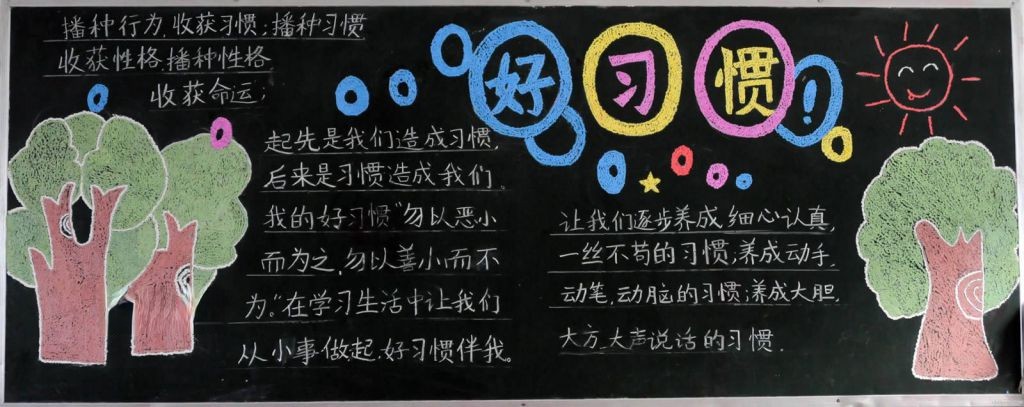 播种行为,收获习惯;播种习惯
收获性格,播种性格
收获命运;
好习惯!
起先是我们造成习惯,
后来是习惯造成我们。
我的好习惯“勿以恶小
而为之,勿以善小而不
为。”在学习生活中让我们
从小事做起,好习惯伴我。
让我们逐步养成细心认真,
一丝不苟的习惯;养成动手,
动笔,动脑的习惯;养成大胆,
大方,大声说话的习惯.